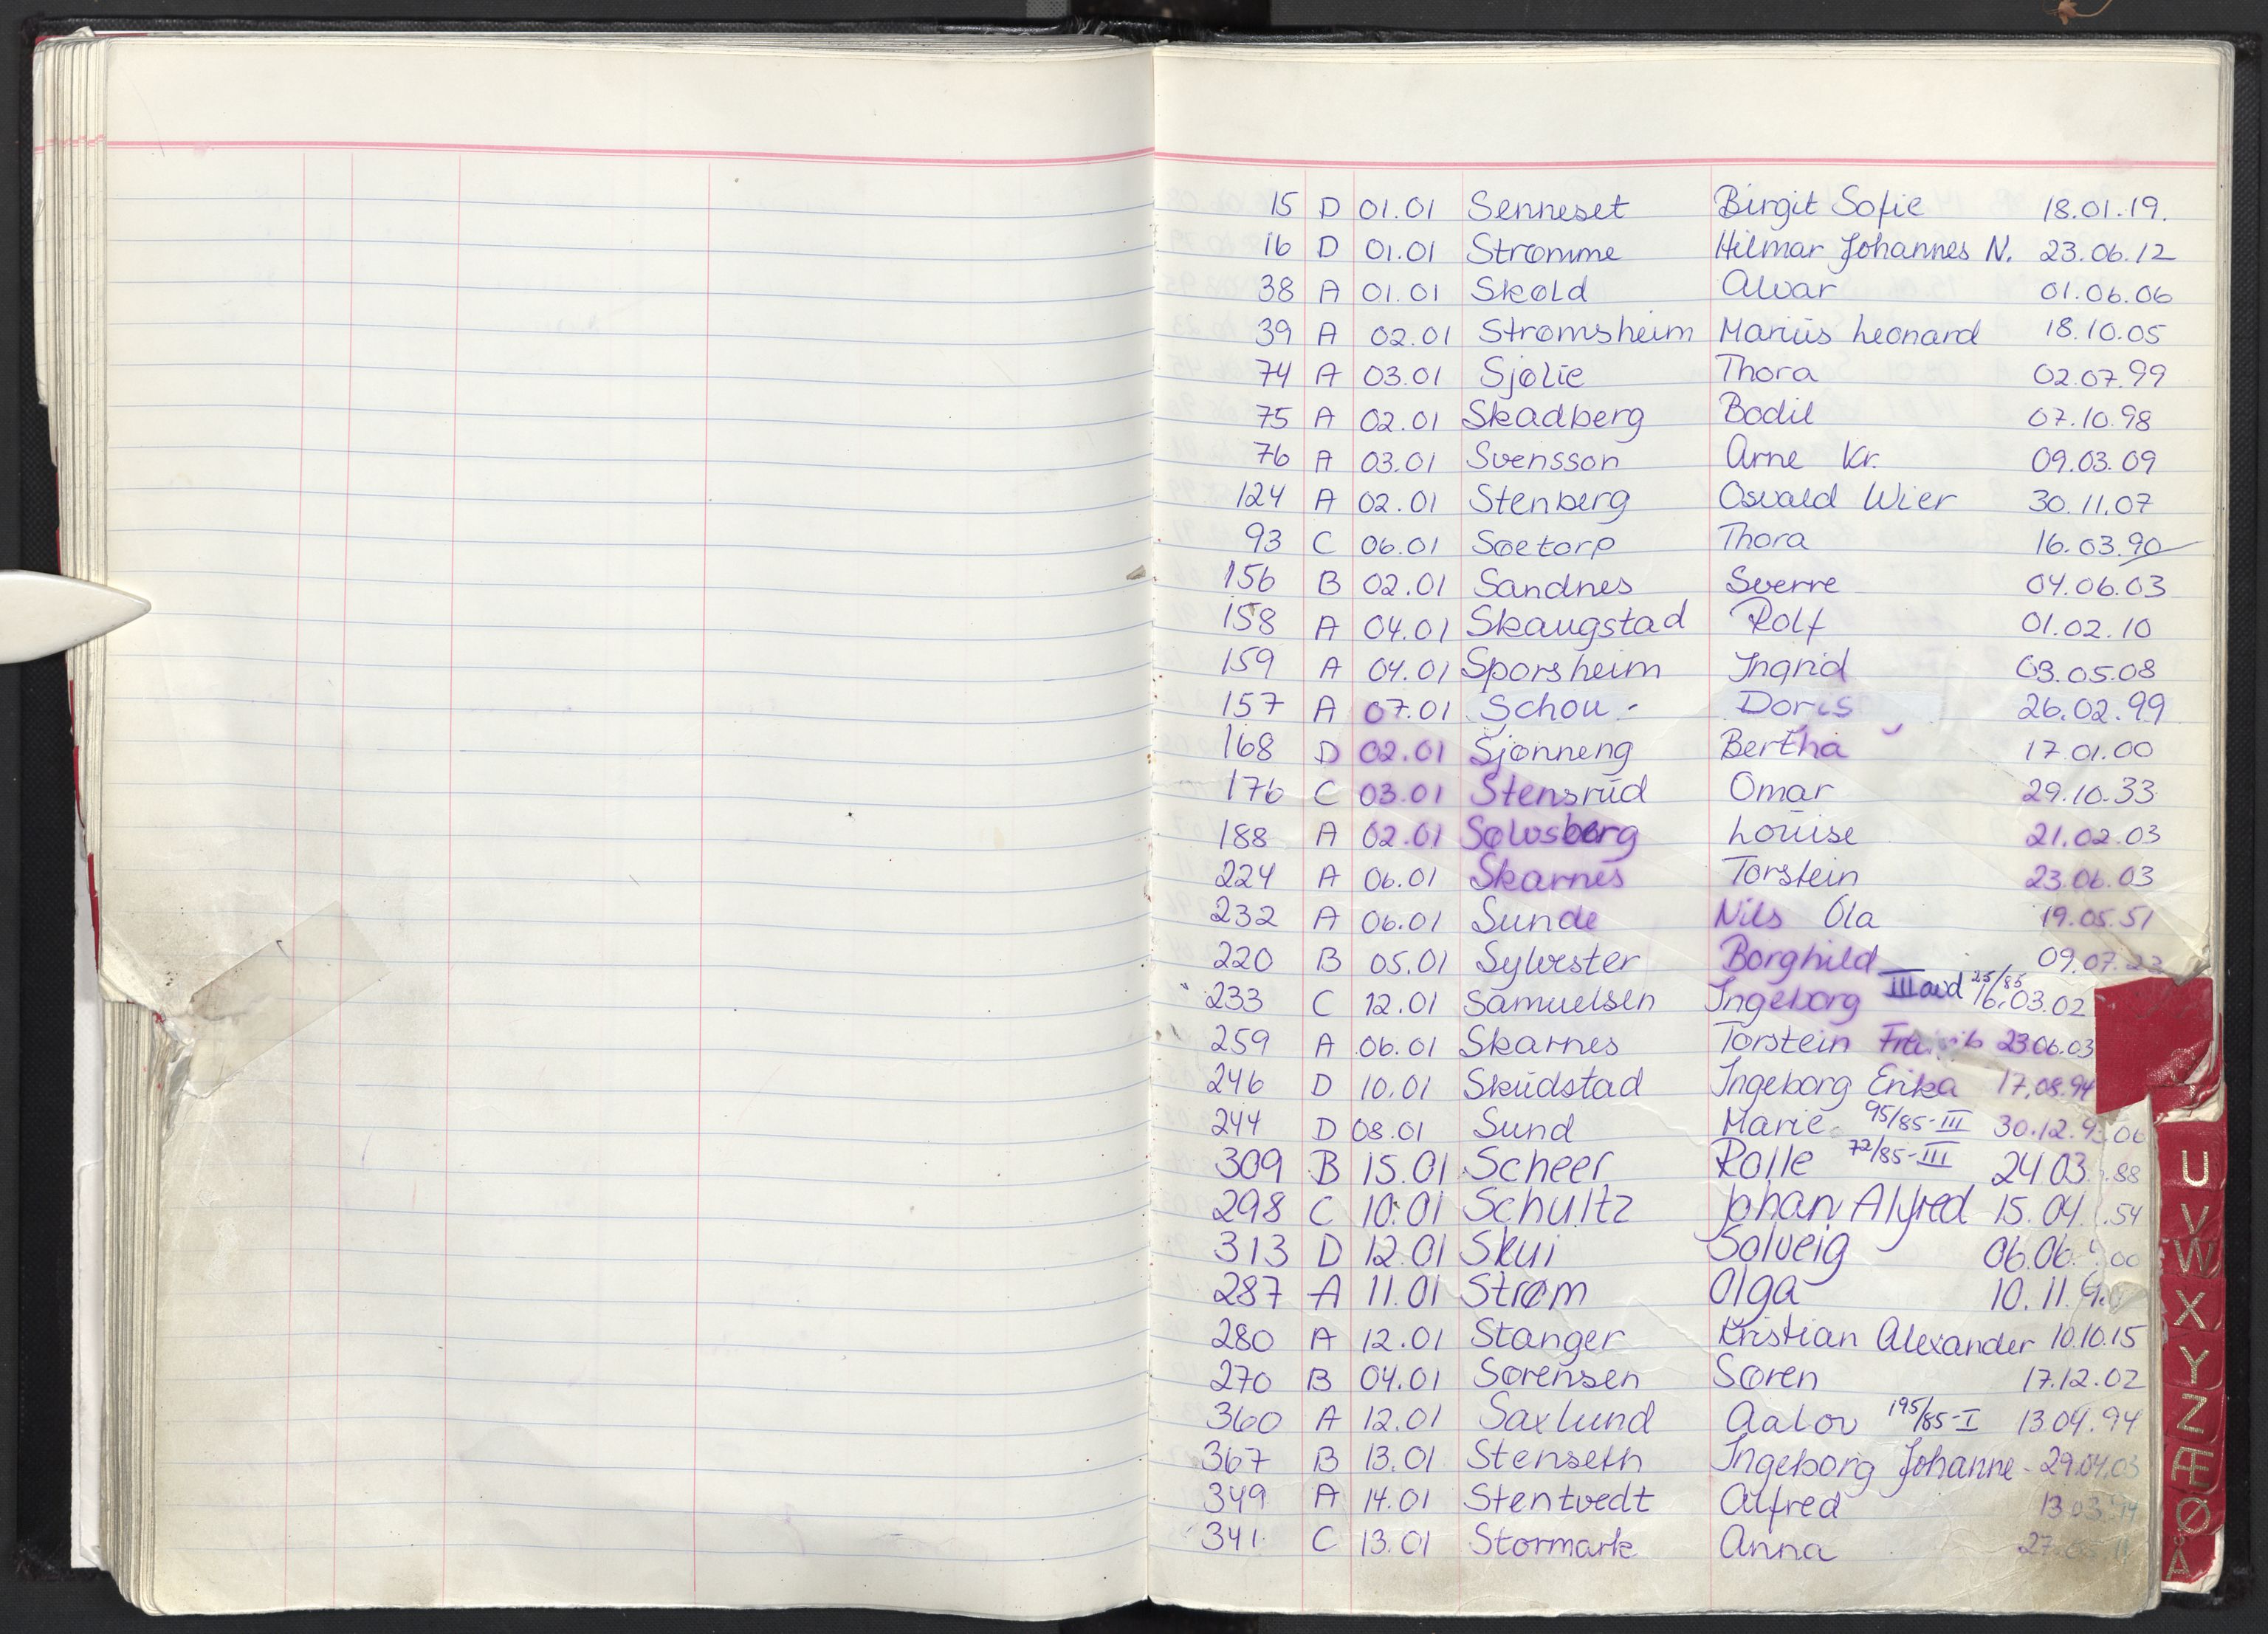 15 D 01.01 Senneset Birgit Sofie 18.01.19.
16 D 01.01 Strømme Hilmar Johannes N. 23.06.12
38 A 01.01 Skøld Alvar 01.06.06
39 A 02.01 Strømsheim Marius Leonard 18.10.05
74 A 03.01 Sjølie Thora 02.07.99
75 A 02.01 Skadberg Bodil 07.10.98
76 A 03.01 Svensson Arne Kr. 09.03.09
124 A 02.01 Stenberg Osvald Wier 30.11.07
93 C 06.01 Sætorp Thora 16.03.90
156 B 02.01 Sandnes Sverre 04.06.03
158 A 04.01 Skaugstad Rolf 01.02.10
159 A 04.01 Sporsheim Ingrid 03.05.08
157 A 07.01 Schou - Doris 26.02.99
168 D 02.01 Sjønneng Bertha 17.01.00
176 C 03.01 Stensrud Omar 29.10.33
188 A 02.01 Sølvsberg Louise 21.02.03
224 A 06.01 Skarnes Torstein 23.06.03
232 A 06.01 Sunde Nils Ola 19.05.51
220 B 05.01 Sylvester Borghild 09.07.23
233 C 12.01 Samuelsen Ingeborg III avd 25/85 16.03.02
259 A 06.01 Skarnes Torstein 23.06.03
246 D 10.01 Skudstad Ingeborg Erika 17.08.94
244 D 08.01 Sund Marie 95/85-III 30.12.
309 B 15.01 Scheer Rolle 72/85-III 24.03.
298 C 10.01 Schultz Johan Alfred 15.04.
313 D 12.01 Skui Solveig 06.06.
287 A 11.01 Strøm Olga 10.11.
280 A 12.01 Stanger Kristian Alexander 10.10.15
270 B 04.01 Sørensen Søren 17.12.02
360 A 12.01 Saxlund Aalov 195/85-I 13.04.94
367 B 13.01 Stenseth Ingeborg Johanne - 29.04.03
349 A 14.01 Stentvedt Alfred 13.03.
341 C 13.01 Stormark Anna 27.
U
V
W
X
Y
Z
Æ
Ø
Å